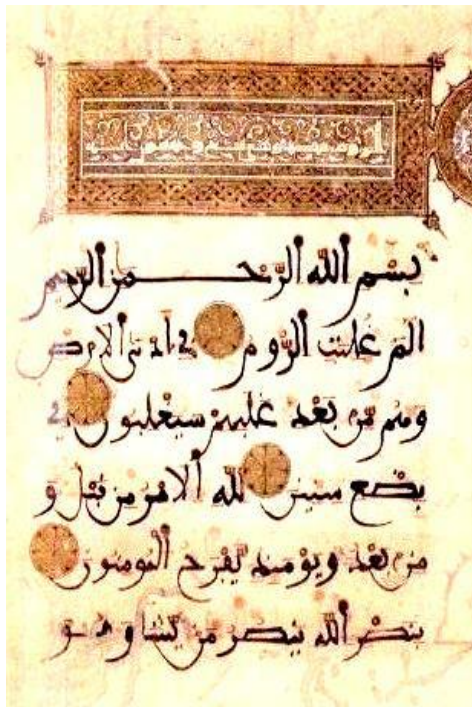 بسم الله الرحمن الرحيم
الم غلبت الروم في أدنى الارض
وهم من بعد غلبهم سيغلبون في
بضع سنين لله الامر من قبل و
من بعد ويومئذ يفرح المومنون
بنصر الله ينصر من يشا وهو